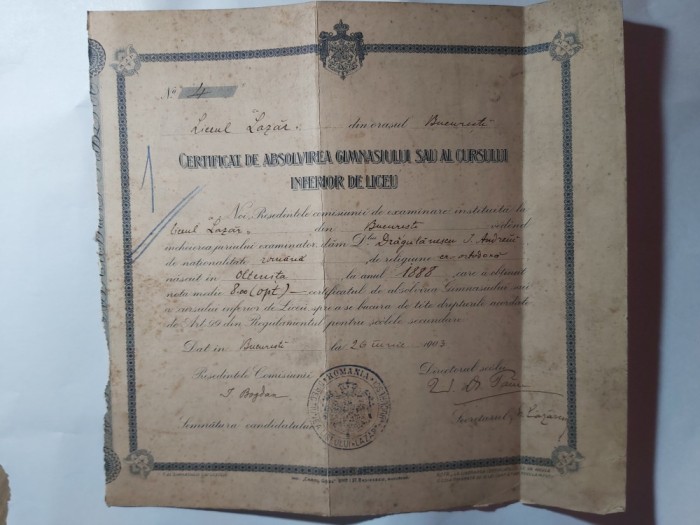 No 4
Liceul "Lazăr" din orașul București
CERTIFICAT DE ABSOLVIREA GIMNASIULUI SAU AL CURSULUI
INFERIOR DE LICEU
Noi, Președintele comisiunii de examinare instituită la
Liceul "Lazăr" din București văzând
încheierea juriului examinator dăm D-lui Drăguțănescu I. Andreiŭ
de naționalitate română de religiune cr. ortodocsă
născut în Oltenița la anul 1888, care a obținut
nota medie 8 (opt) — certificatul de absolvirea Gimnasiului sau
a cursului inferior de Liceŭ, spre a se bucura de tóte drepturile acordate
de Art. din Regulamentul pentru școlele secundare.
Dat în București la 26 Iunie 1903
Președintele Comisiunii Directorul școlei
I. Bogdan
Secretarul
Semnătura candidatului
ROMANIA